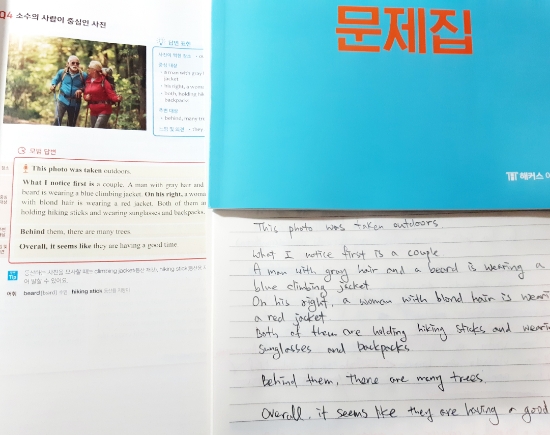 Q4 소수의 사람이 중심인 사진
답변 표현
a man with gray
jacket
his right, a woma
both, holding hik
backpacks
behind, many tr
모범 답변
This photo was taken outdoors.
What I notice first is a couple. A man with gray hair and
beard is wearing a blue climbing jacket. On his right, a woma
with blond hair is wearing a red jacket. Both of them ar
holding hiking sticks and wearing sunglasses and backpacks.
Behind them, there are many trees
Overall, it seems like they are having a good time
Tip
어휘 beard hiking stick
문제집
해커스
This photo was taken outdoors
What I notice first is a couple
A man with gray hair and a beard is wearing a
blue climbing jacket
On his right, a woman with blond hair is weari
a red jacket
Both of them are holding hiking sticks and wearin
sunglasses and backpacks
Behind them, there are many trees.
Overall, it seems like they are having a good